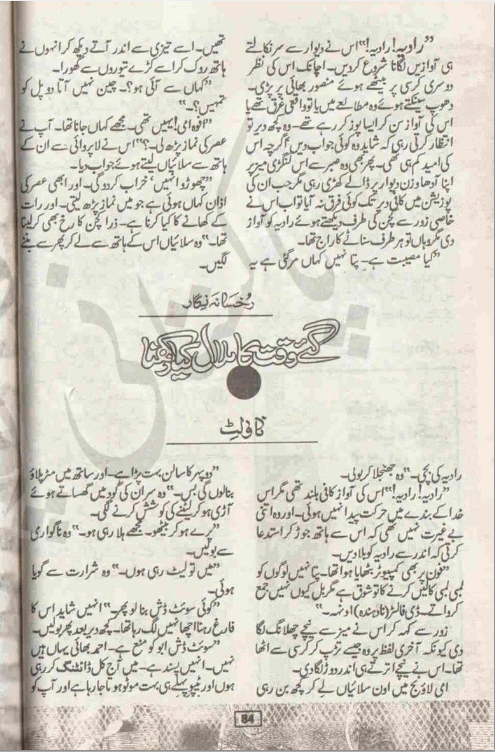 ”رادیہ! رادیہ!“ اس نے دیوار سے سر نکالتے
ہی آوازیں لگانا شروع کردیں۔ اچانک اس کی نظر
دوسری کرسی پر بیٹھے ہوئے منصور بھائی پر پڑی۔
دھوپ سینکتے ہوئے وہ مطالعے میں یا تو واقعی غرق تھے یا
اس کی آواز سن کر ایسا پوز کر رہے تھے۔ وہ کچھ دیر تو
انتظار کرتی رہی کہ شاید وہ کوئی جواب دیں اگرچہ اس
کی امید کم ہی تھی۔ پھر بھی وہ صبر سے اس لنگڑی میز پر
اپنا آدھا وزن دیوار پر ڈالے کھڑی رہی مگر جب ان کی
پوزیشن میں کافی دیر تک کوئی فرق نہ آیا تو اب اس نے
خاصی زور سے کچن کی طرف دیکھتے ہوئے رادیہ کو آواز
دی مگر وہاں تو ہر طرف سناٹے کا راج تھا۔
”کیا مصیبت ہے۔ پتا نہیں کہاں مرگئی ہے یہ
تھیں۔ اسے تیزی سے اندر آتے دیکھ کر انہوں نے
ہاتھ روک کر اسے کڑے تیوروں سے گھورا۔
”کہاں سے آئی ہو؟۔ چین نہیں آتا دو پل کو
تمہیں؟۔“
”افوہ امی! یہیں تھی۔ مجھے کہاں جانا تھا۔ آپ نے
عصر کی نماز پڑھ لی۔؟“ اس نے لاپروائی سے ان کے
ہاتھ سے سلائیاں لیتے ہوئے جواب دیا۔
”چھوڑو انہیں ‘ خراب کردو گی۔ اور ابھی عصر کی
اذان کہاں ہوئی ہے جو میں نماز پڑھ لیتی۔ اور رات
کے کھانے کا کیا کرنا ہے۔ ذرا کچن کا رخ بھی کرلینا
تھا۔“ وہ سلائیاں اس کے ہاتھ سے لے کر پھر سے بننے
لگیں۔
رخسانہ نگار
گئے وقت کا ملال کیا رکھنا
ناولٹ
رادیہ کی بچی۔“ وہ جھنجلا کر بولی۔
”رادیہ! رادیہ!“ اس کی آواز کافی بلند تھی مگر اس
خدا کے بندے میں حرکت پیدا نہیں ہوئی۔ اور وہ اتنی
بے غیرت نہیں تھی کہ اس سے ہاتھ جوڑ کر استدعا
کرتی کہ اندر سے رادیہ کو بلا دیں۔
”فون پر بھی کمپیوٹر بٹھایا ہوا تھا۔ پتا نہیں لوگوں کو
لمبی لمبی کالیں کرنے کا تو شوق ہے مگر بل کیوں نہیں جمع
کرواتے۔ ڈی فالٹر (نادہندہ) اونہہ۔“
زور سے کہہ کر اس نے میز سے نیچے چھلانگ لگا
دی کیونکہ آخری لفظ پر وہ جیسے تڑپ کر کرسی سے اٹھا
تھا۔ اس نے نیچے اترتے ہی اندر دوڑ لگا دی۔
امی لاؤنج میں اون سلائیاں لیے کر کچھ بن رہی
”دوپہر کا سالن بہت پڑا ہے۔ اور ساتھ میں مٹر پلاؤ
بنالوں گی بس۔“ وہ سر ان کی گود میں گھساتے ہوئے
آڑی ہو کر لیٹنے کی کوشش کرنے لگی۔
”پرے ہو کر بیٹھو۔ مجھے ہلا رہی ہو۔“ وہ ناگواری
سے بولیں۔
”میں تو لیٹ رہی ہوں۔“ وہ شرارت سے گویا
ہوئی۔
”کوئی سوئٹ ڈش بنا لو پھر۔“ انہیں شاید اس کا
فارغ رہنا اچھا نہیں لگ رہا تھا۔ کچھ دیر بعد پھر بولیں۔
”سوئٹ ڈش ابو کو منع ہے۔ احمد بھائی یہاں ہیں
نہیں۔ انہیں پسند ہے۔ میں آج کل ڈائٹنگ کر رہی
ہوں اور ٹیپو پہلے ہی بہت موٹو ہوتا جا رہا ہے اور آپ کو
84
پاکستانی